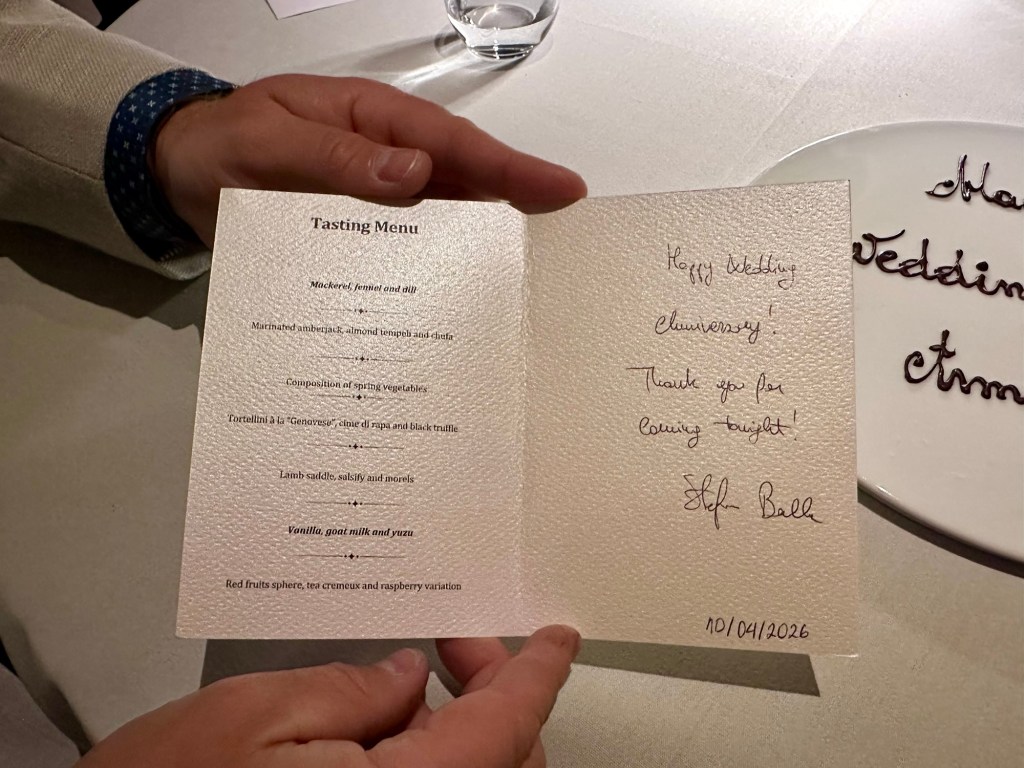 Tasting Menu
Mackerel, fennel and dill
Marinated amberjack, almond tempeh and chufa
Composition of spring vegetables
Tortellini à la "Genovese", cime di rapa and black truffle
Lamb saddle, salsify and morels
Vanilla, goat milk and yuzu
Red fruits sphere, tea cremeux and raspberry variation
Happy Wedding
Anniversary!
Thank you for
coming tonight!
10/04/2026
Weddin